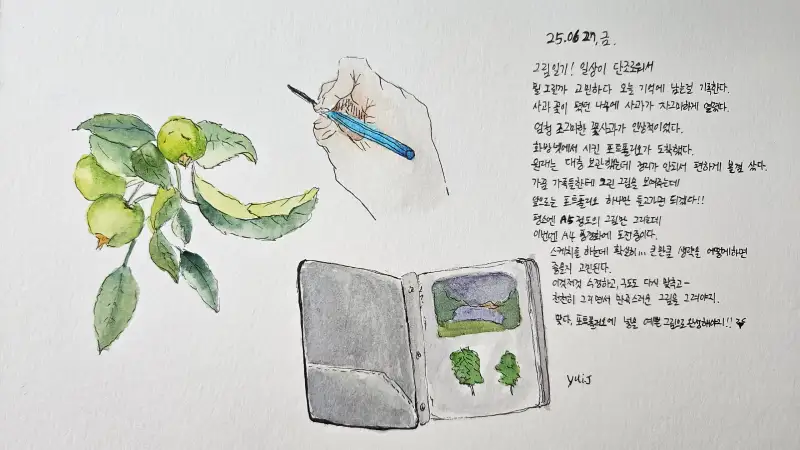 25.06.27, 금.
그림일기! 일상이 단조로워서
뭘 그릴까 고민하다 오늘 기억에 남는걸 기록한다.
사과 꽃이 폈던 나무에 사과가 자그마하게 열렸다.
엄청 조그마한 꽃사과가 인상적이었다.
화방넷에서 시킨 포트폴리오가 도착했다.
원래는 대충 보관했는데 정리가 안되서 편하게 볼겸 샀다.
가끔 가족들한테 그린 그림을 보여주는데
앞으로는 포트폴리오 하나만 들고가면 되겠다!!
평소엔 A5 정도의 그림만 그리는데
이번엔 A4 풍경화에 도전중이다.
스케치를 하는데 확실히... 큰만큼 생각을 어떻게하면
좋을지 고민된다.
이것저것 수정하고, 구도도 다시 맞추고~
천천히 그리면서 만족스러운 그림을 그려야지.
맞다, 포트폴리오에 넣을 예쁜 그림으로 완성해야지!!
yuij